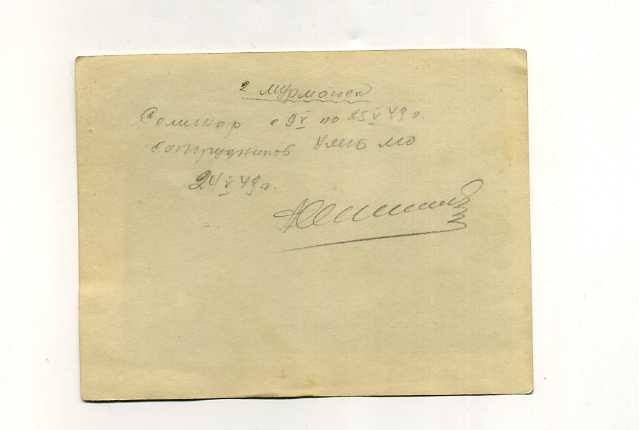 г Мурманск
Семинар с 9 V по 25 V 49 г.
сотрудников УМГБ МО
24 V 49 г.